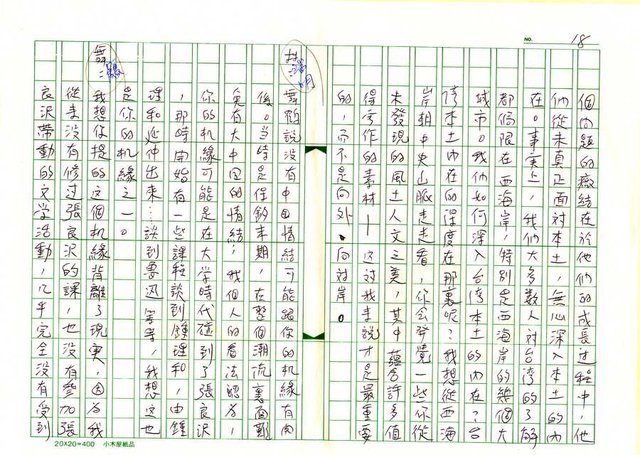 NO. 18
個問題的癥結在於他們的成長過程中，他
們從未真正面對本土，無心深入本土的內
在。事實上，我們大多數人對台灣的了解
都侷限在西海岸，特別是西海岸的幾個大
城市。我們如何深入台灣本土的內在？台
灣本土內在的深度在那裏呢？我想從西海
岸朝中央山脈走走看，你會發覺一些你從
未發現的風土人文之美，其中蘊含許多值
得寫作的素材——這對我來說才是最重要
的，而不是向外、向對岸。
舞鶴說沒有中國情結可能跟你的机緣有關
後。當時是保釣末期，在整個潮流裏面難
免有大中國的情結；我個人的看法認為，
你的机緣可能是在大學時代碰到了張良沢
，那時開始有一些課程談到鍾理和，由鍾
理和延伸出來…談到魯迅等等，我想這也
是你的机緣之一。
舞鶴
我想你提的這個机緣背離了現實，因為我
從來沒有修过張良沢的課，也沒有參加張
良沢帶動的文学活動，几乎完全沒有受到
20X20=400 小木屋紙品